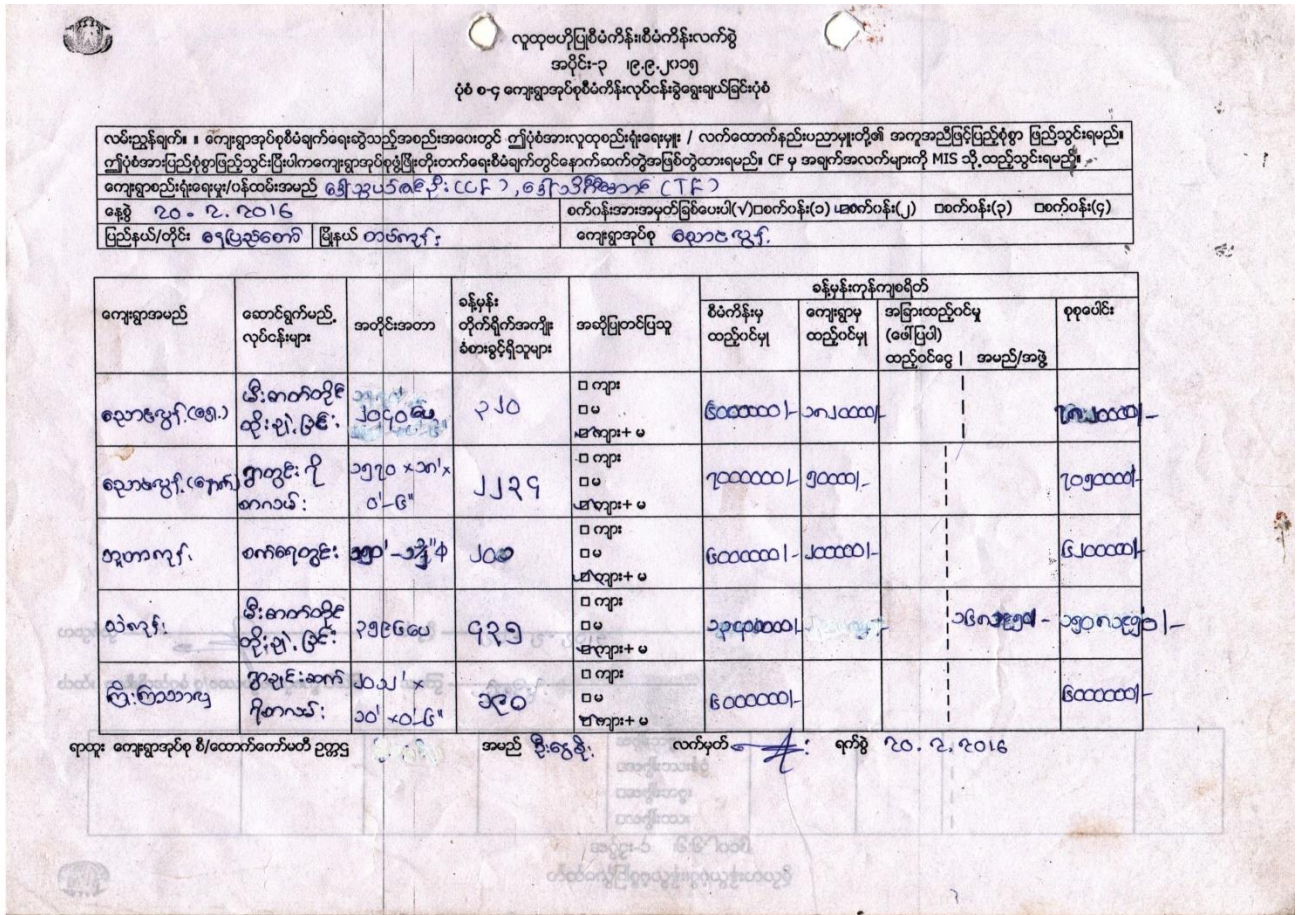 လူထုဗဟိုပြုစီမံကိန်း၊စီမံကိန်းလက်စွဲ
အပိုင်း-၃ ၊၉.၉.၂၀၁၅
ပုံစံ စ-၄ ကျေးရွာအုပ်စုစီမံကိန်းလုပ်ငန်းခွဲရွေးချယ်ခြင်းပုံစံ
လမ်းညွှန်ချက်။ ။ ကျေးရွာအုပ်စုစီမံချက်ရေးဆွဲသည့်အစည်းအဝေးတွင် ဤပုံစံအားလူထုစည်းရုံးရေးမှူး / လက်ထောက်နည်းပညာမှူးတို့၏ အကူအညီဖြင့်ပြည့်စုံစွာ ဖြည့်သွင်းရမည်။
ဤပုံစံအားပြည့်စုံစွာဖြည့်သွင်းပြီးပါကကျေးရွာအုပ်စုဖွံ့ဖြိုးတိုးတက်ရေးစီမံချက်တွင်နောက်ဆက်တွဲအဖြစ်တွဲထားရမည်။ CF မှ အချက်အလက်များကို MIS သို့ ထည့်သွင်းရမည်။
ကျေးရွာစည်းရုံးရေးမှူး/ဝန်ထမ်းအမည် (CF) , (TF)
နေ့စွဲ ၃၀. ၃. 2016 စက်ဝန်းအားအမှတ်ခြစ်ပေးပါ(√)□စက်ဝန်း(၁) ☑စက်ဝန်း(၂) □စက်ဝန်း(၃) □စက်ဝန်း(၄)
ပြည်နယ်/တိုင်း နေပြည်တော် မြို့နယ် တပ်ကုန်း ကျေးရွာအုပ်စု ညောင်လွန့်
ခန့်မှန်းကုန်ကျစရိတ်
ကျေးရွာအမည် ဆောင်ရွက်မည့် လုပ်ငန်းများ အတိုင်းအတာ ခန့်မှန်း တိုက်ရိုက်အကျိုး ခံစားခွင့်ရှိသူများ အဆိုပြုတင်ပြသူ စီမံကိန်းမှ ထည့်ဝင်မှု ကျေးရွာမှ ထည့်ဝင်မှု အခြားထည့်ဝင်မှု (ဖော်ပြပါ) ထည့်ဝင်ငွေ | အမည်/အဖွဲ့ စုစုပေါင်း
ညောင်လွန့်(ရှေ့) မီးဓာတ်တိုင် တိုးချဲ့ခြင်း ၂၀၄၀ပေ ၃၂၀ □ ကျား □ မ ☑ကျား+ မ ၆၀၀၀၀၀၀/- ၁၈၂၀၀၀၀/- ၇၈၂၀၀၀၀/-
ညောင်လွန့်(နောက်) ရွာတွင်း ကွန်ကရစ် ၁၅၇၀ x ၁၈' x ၀'-၆" ၂၂၃၄ □ ကျား □ မ ☑ကျား+ မ ၇၀၀၀၀၀၀/- ၅၀၀၀၀/- ၇၀၅၀၀၀၀/-
ဘူတာကုန်း စက်ရေတွင်း ၂၀၀ □ ကျား □ မ ☑ကျား+ မ ၆၀၀၀၀၀၀/- ၂၀၀၀၀၀/- ၆၂၀၀၀၀၀/-
မီးဓာတ်တိုင် တိုးချဲ့ခြင်း ၃၅၉၆ပေ ၄၃၅ □ ကျား □ မ ☑ကျား+ မ ၁၆၈၁၉၅၀/- ၁၅၀၈၁၉၅၀/-
၁၀' x ၀'-၆" ၁၉၀ □ ကျား □ မ ☑ကျား+ မ ၆၀၀၀၀၀၀/- ၆၀၀၀၀၀၀/-
ရာထူး ကျေးရွာအုပ်စု စီ/ထောက်ကော်မတီ ဥက္ကဋ္ဌ အမည် လက်မှတ် ရက်စွဲ ၃၀. ၃. 2016